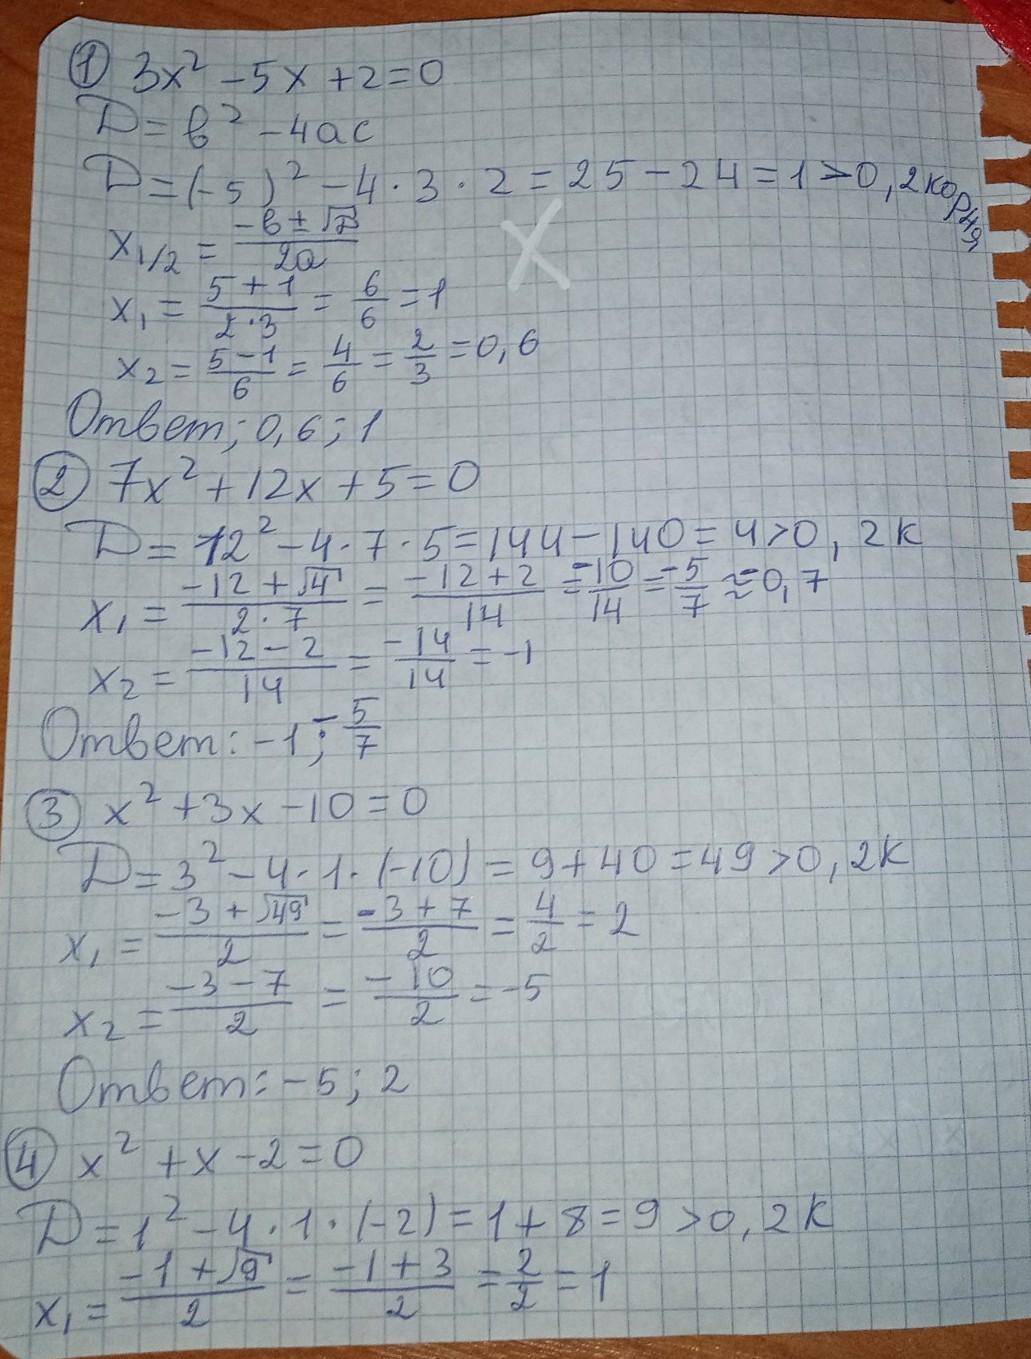 ① 3x² - 5x + 2 = 0
D = b² - 4ac
D = (-5)² - 4 · 3 · 2 = 25 - 24 = 1 > 0, 2 корня
x₁/₂ = (-b ± √D)/2a
x₁ = (5 + 1)/(2 · 3) = 6/6 = 1
x₂ = (5 - 1)/6 = 4/6 = 2/3 = 0,6
Ответ; 0,6 ; 1
② 7x² + 12x + 5 = 0
D = 12² - 4 · 7 · 5 = 144 - 140 = 4 > 0, 2к
x₁ = (-12 + √4)/(2 · 7) = (-12 + 2)/14 = -10/14 = -5/7 ≈ -0,7
x₂ = (-12 - 2)/14 = -14/14 = -1
Ответ: -1 ; -5/7
③ x² + 3x - 10 = 0
D = 3² - 4 · 1 · (-10) = 9 + 40 = 49 > 0, 2к
x₁ = (-3 + √49)/2 = (-3 + 7)/2 = 4/2 = 2
x₂ = (-3 - 7)/2 = -10/2 = -5
Ответ: -5; 2
④ x² + x - 2 = 0
D = 1² - 4 · 1 · (-2) = 1 + 8 = 9 > 0, 2к
x₁ = (-1 + √9)/2 = (-1 + 3)/2 = 2/2 = 1